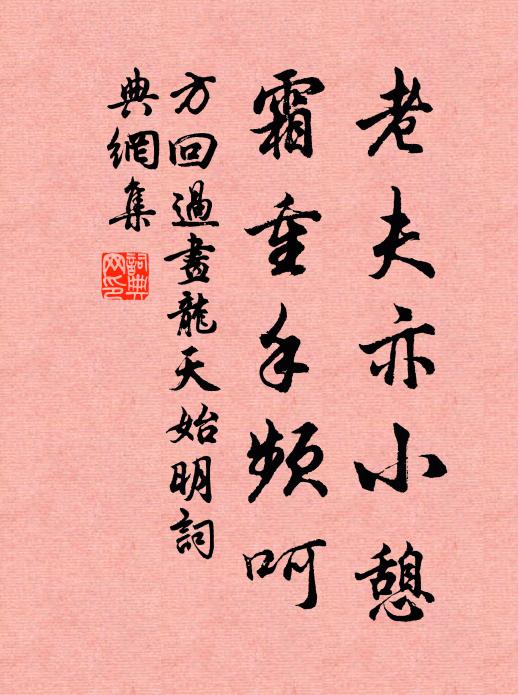 老夫亦小憩
霜重手頻呵
方回過畫龍天始明詞
典網集
詞典網印